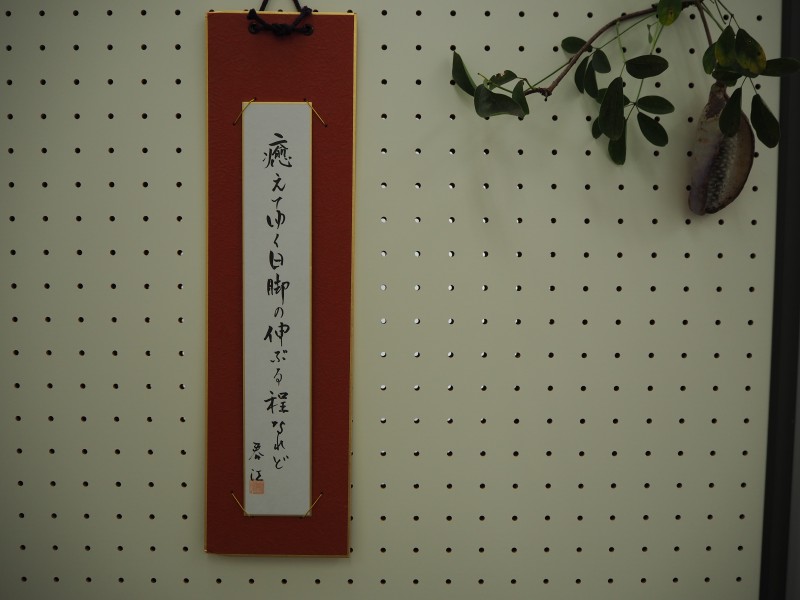 癒えてゆく日脚の伸ぶる程なれど
春江